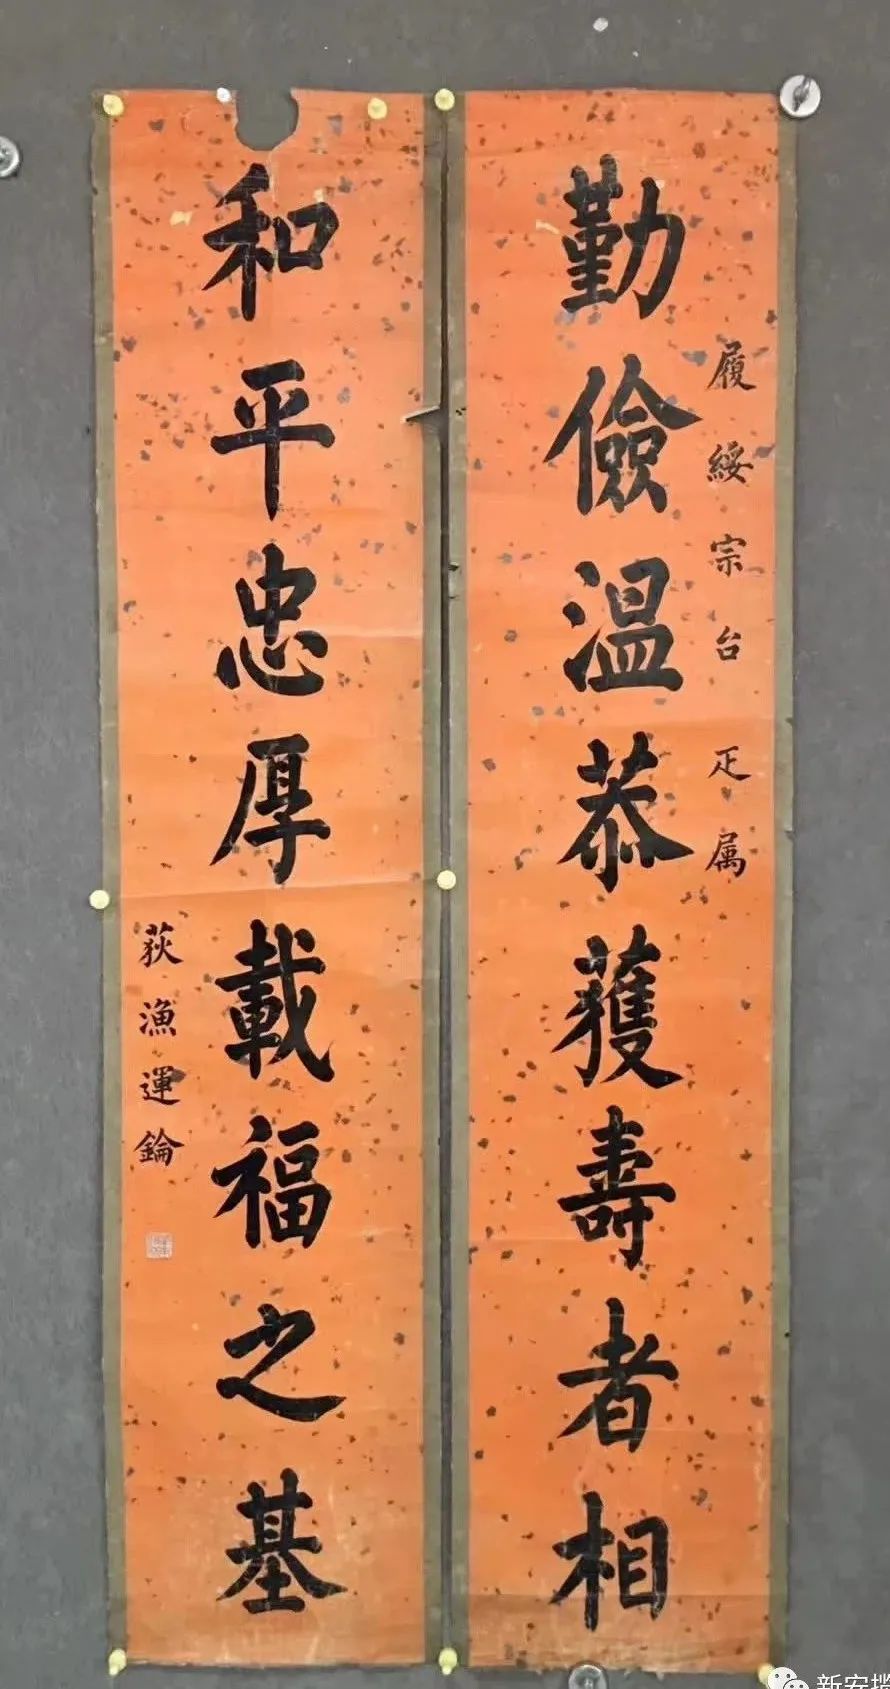 履綏宗台 疋属
勤儉温恭獲壽者相
和平忠厚載福之基
荻漁運錀
新安攬